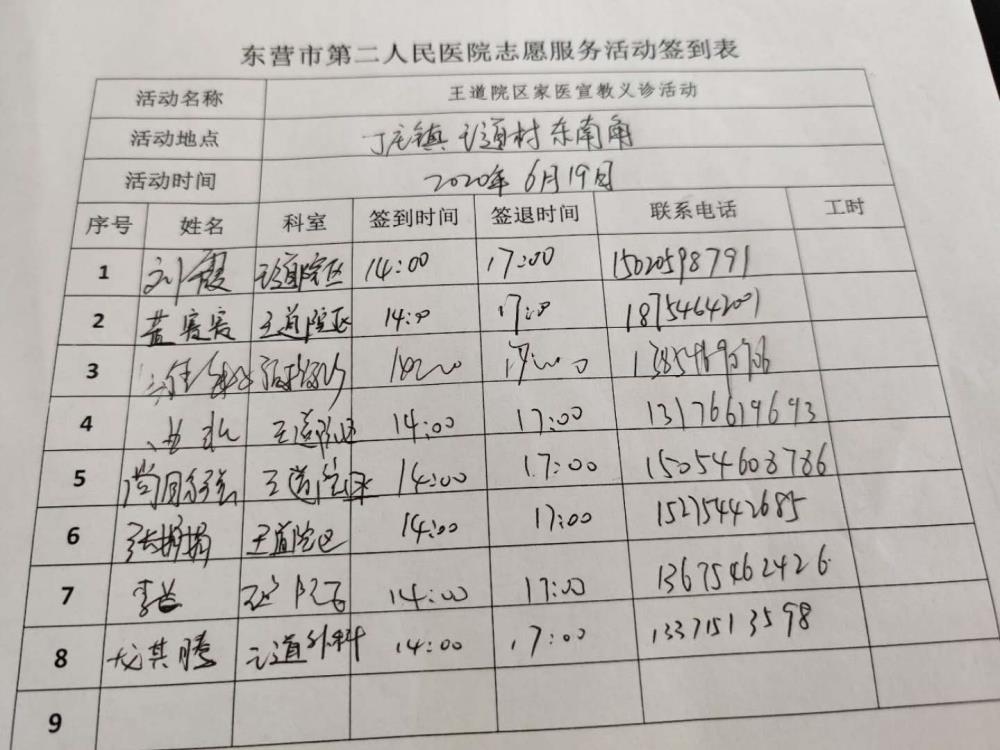 东营市第二人民医院志愿服务活动签到表
活动名称 王道院区家医宣教义诊活动
活动地点 丁庄镇王道村东南角
活动时间 2020年6月19日
序号 姓名 科室 签到时间 签退时间 联系电话 工时
1 刘霞 王道院区 14:00 17:00 15020598791
2 盖赛赛 王道院区 14:00 17:00 18754642001
3 14:00 17:00
4 王道院区 14:00 17:00 13176619693
5 王道院区 14:00 17:00 15054608786
6 王道院区 14:00 17:00 15275442685
7 李益 王道院区 14:00 17:00 13675462426
8 尤其腾 王道外科 14:00 17:00 13371513598
9